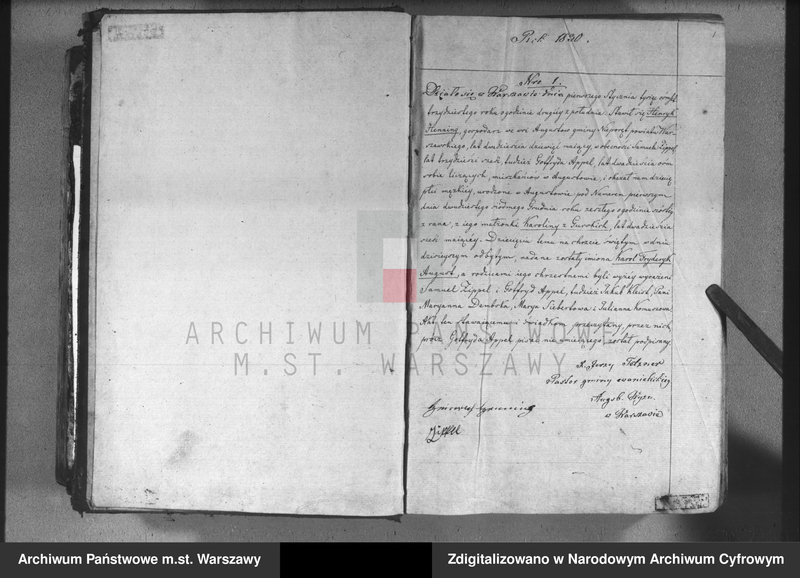 Rok 1830.
Nro 1.
Działo się w Warszawie dnia pierwszego Stycznia tysiąc ośmset
trzydziestego roku o godzinie drugiey z południa. Stawił się Henryk
Henning, gospodarz we wsi Augustow gminy Nieporęt powiatu War-
szawskiego, lat dwadzieścia dziewięć maiący, w obecności Samuela Zippel
lat trzydzieści sześć, tudzież Gottfryda Appel, lat dwadzieścia ośm
sobie liczących, mieszkańców w Augustowie, i okazał nam dziecię
płci męzkiey, urodzone w Augustowie pod Numerem pierwszym
dnia dwudziestego siódmego Grudnia roku zeszłego o godzinie szóstey
z rana, z iego małżonki Karoliny z Gurskich, lat dwadzieścia
sześć maiącey. Dziecięciu temu na chrzcie świętym w dniu
dzisieyszym odbytym, nadane zostały imiona Karol Fryderyk
August, a rodzicami iego chrzestnemi byli wyżey wyrażeni
Samuel Zippel i Gottfryd Appel, tudzież Jakób Pani
Maryanna Dombrka, Marya Siebertowa i Julianna
Akt ten stawaiącemu i świadkom przeczytany, przez nich
prócz Gottfryda Appel pisać nie umieiącego, został podpisany
X. Jerzy Tetzner
Pastor gminy ewanielickiey
Augsb. Wyzn.
w Warszawie
Zippel
ARCHIWUM PAŃSTWOWE
M.ST. WARSZAWY
Archiwum Państwowe m.st. Warszawy
Zdigitalizowano w Narodowym Archiwum Cyfrowym